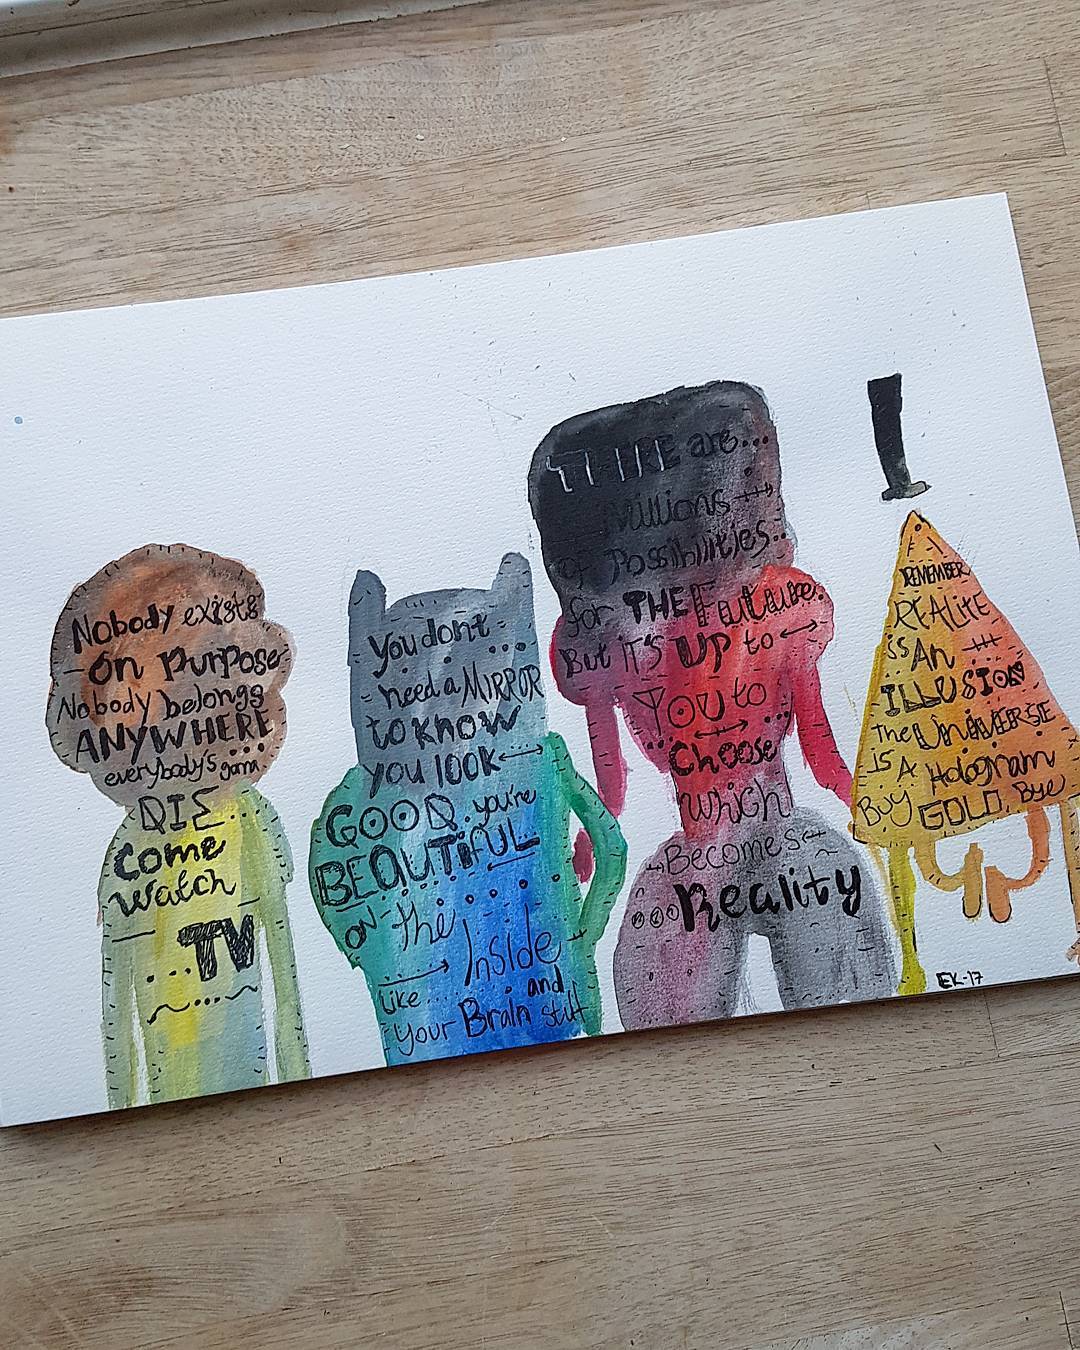 Nobody exists
on purpose
Nobody belongs
ANYWHERE
everybody's gonna
DIE
come
watch
...TV
You dont
need a MIRROR
to know
you look
GOOD. you're
BEAUTIFUL
on the
Inside
Like.... and
your Brain stuff
THERE are...
Millions
Of Possibilities..
for THE Future.
But iT's UP to
YOU to ...
Choose
which
Becomes
Reality
REMEMBER
REALiTE
is An
ILLUSION
The UNIVERSE
is A Hologram
BUY GOLD, Bye
EK-17